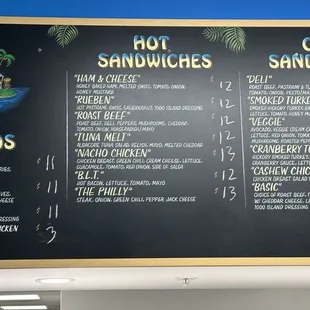 DS
RIES.
VES,
HEESE
11
11
ESSING
11
ICKEN
3
HOT
SANDWICHES
"HAM & CHEESE"
HONEY BAKED HAM, MELTED SWISS, TOMATO, ONION,
HONEY MUSTARD
12
"RUEBEN"
HOT PASTRAMI, SWISS, SAUERKRAUT, 1000 ISLAND DRESSING
12
"ROAST BEEF"
ROAST BEEF, BELL PEPPERS, MUSHROOMS, CHEDDAR,
TOMATO, ONION, HORSERADISH/MAYO
12
"TUNA MELT"
ALBACORE TUNA SALAD, RELISH, MAYO, MELTED CHEDDAR
12
"NACHO CHICKEN"
CHICKEN BREAST, GREEN CHILI, CREAM CHEESE, LETTUCE,
GUACAMOLE, TOMATO, RED ONION, SIDE OF SALSA
13
"B.L.T."
HOT BACON, LETTUCE, TOMATO, MAYO
12
"THE PHILLY"
STEAK, ONION, GREEN CHILI PEPPER, JACK CHEESE
13
SAND
"DELI"
ROAST BEEF, PASTRAMI & TU
"SMOKED TURKE
HICKORY SMOKED TURKEY,
"VEGGIE"
AVOCADO, VEGGIE CREAM C
"CRANBERRY T
HICKORY SMOKED TURKEY,
CRANBERRY SAUCE, LETTUCE
"CASHEW CHIC
CHICKEN BREAST SALAD
"BASIC"
CHOICE OF ROAST BEEF, T
W/ CHEDDAR CHEESE, L
1000 ISLAND DRESSING